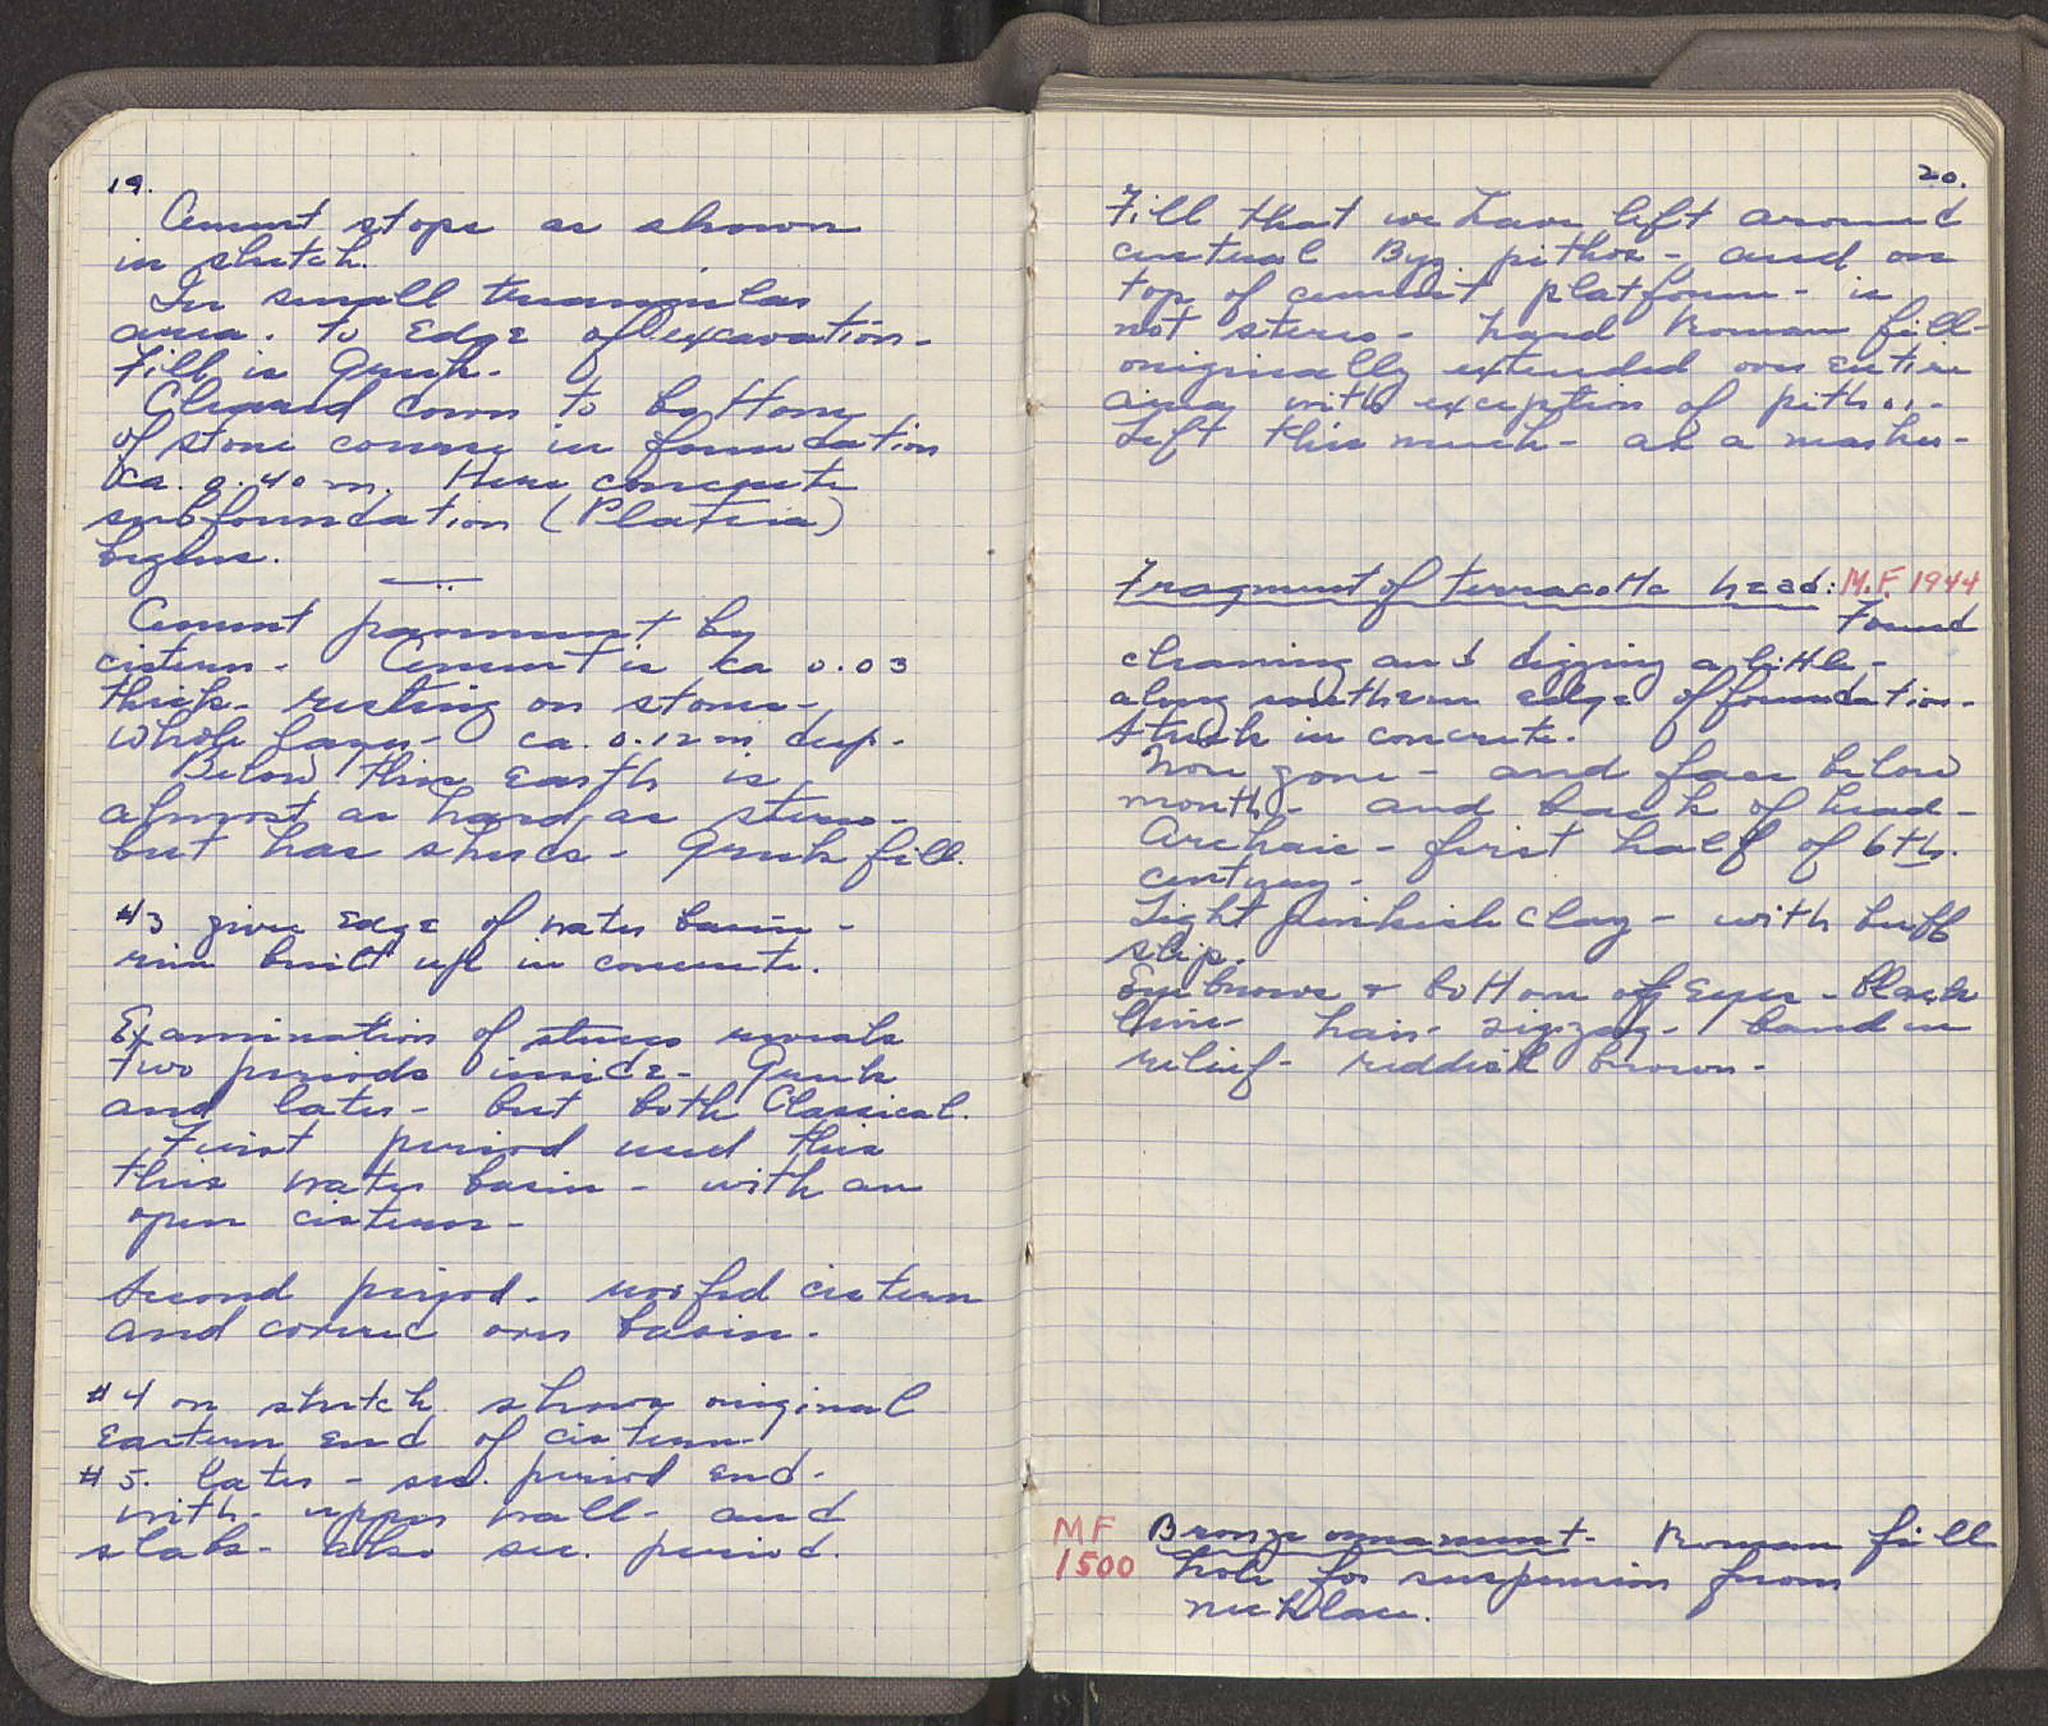 19.
Cement stops as shown
in sketch.
In small triangular
area. to Edge of excavation -
Fill is Greek.
Cleared down to bottom
of stone course in foundation
ca. 0.40 m. Here concrete
subfoundation (Plateia)
begins.
Cement pavement by
cistern - Cement is ca 0.03
thick - resting on stones -
whole layer - ca. 0.12 m deep.
Below this earth is
almost as hard as stereo -
but has sherds - Greek fill.
#3 gives Edge of water basin -
rim built up in concrete.
Examination of stucco reveals
two periods inside - Greek
and later - but both Classical.
First period used this
this water basin - with an
open cistern -
Second period - roofed cistern
and covered over basin.
#4 on sketch shows original
Eastern End of cistern
#5. later - sec. period End.
with - upper wall - and
slabs - also sec. period.
20.
Fill that we have left around
central Byz. pithos - and on
top of cement platform - is
not stereo - hard Roman fill -
originally extended over Entire
area with exception of pithoi -
Left this much - as a marker -
Fragment of terracotta head: M.F. 1944
Found
cleaning and digging a little -
along southern edge of foundation.
Stuck in concrete.
Nose gone - and face below
mouth - and back of head -
Archaic - first half of 6th.
century -
Light pinkish clay - with buff
slip.
Eyebrows + bottom of Eyes - black
line - hair - zigzag - band in
relief - reddish brown -
MF
1500
Bronze ornament - Roman fill
hole for suspension from
necklace.